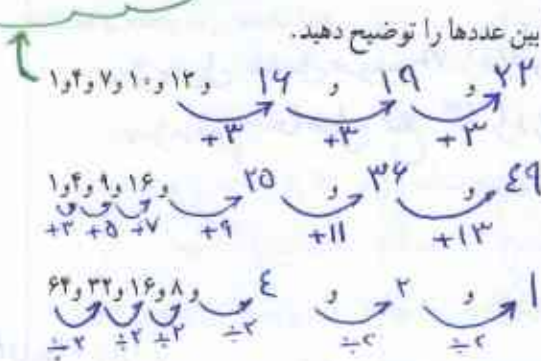 بین عددها را توضیح دهید.
۱ و ۴ و ۷ و ۱۰ و ۱۳ و ۱۶ و ۱۹ و ۲۲
+۳ +۳ +۳
۱ و ۴ و ۹ و ۱۶ و ۲۵ و ۳۶ و ۴۹
+۳ +۵ +۷ +۹ +۱۱ +۱۳
۶۴ و ۳۲ و ۱۶ و ۸ و ۴ و ۲ و ۱
÷۲ ÷۲ ÷۲ ÷۲ ÷۲ ÷۲